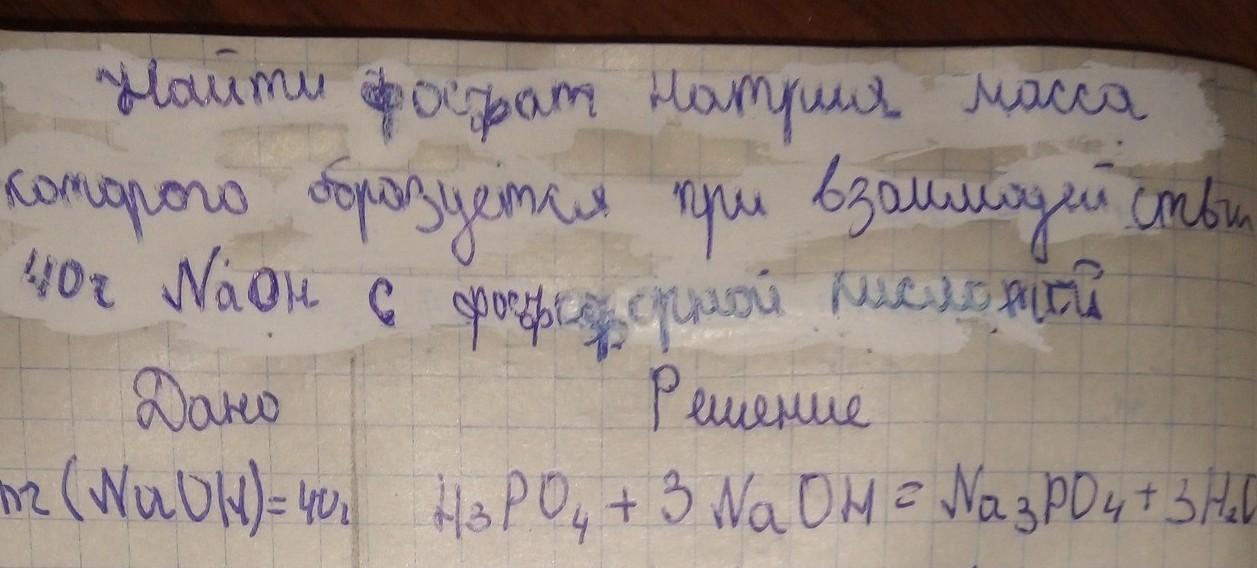 Найти фосфат натрия масса
которого образуется при взаимодействии
40г NaOH с фосфорной кислотой
Дано Решение
m(NaOH)=40г H₃PO₄ + 3NaOH = Na₃PO₄ + 3H₂O